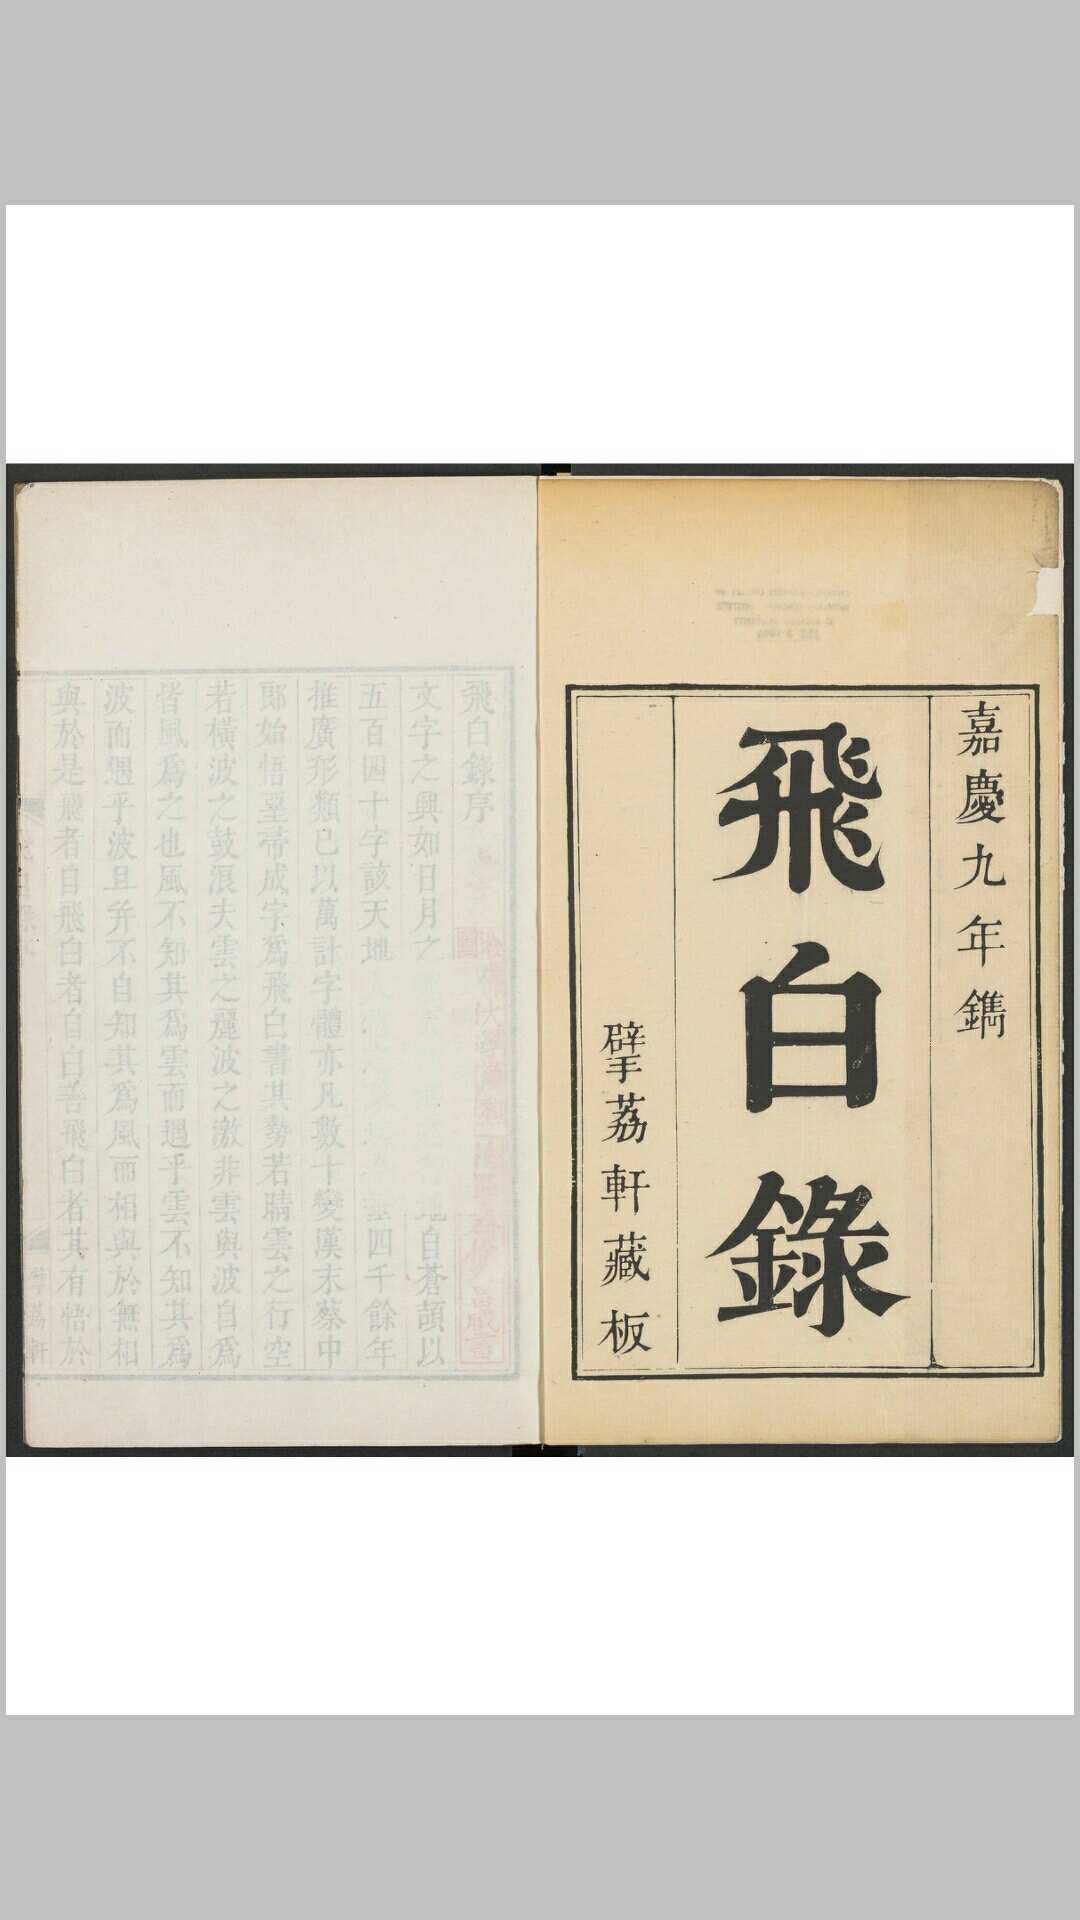 嘉慶九年鐫
飛白錄
擘荔軒藏板
飛白錄序
文字之興如日月之
自蒼頡以
五百四十字該天地
四千餘年
推廣形類已以萬計字體亦凡數十變漢末蔡中
郎始悟堊帚成字為飛白書其勢若晴雲之行空
若橫波之鼓浪夫雲之麗波之激非雲與波自為
皆風為之也風不知其為雲而遇乎雲不知其為
波而遇乎波且并不自知其為風而相與於無相
與於是飛者自飛白者自白善飛白者其有悟於